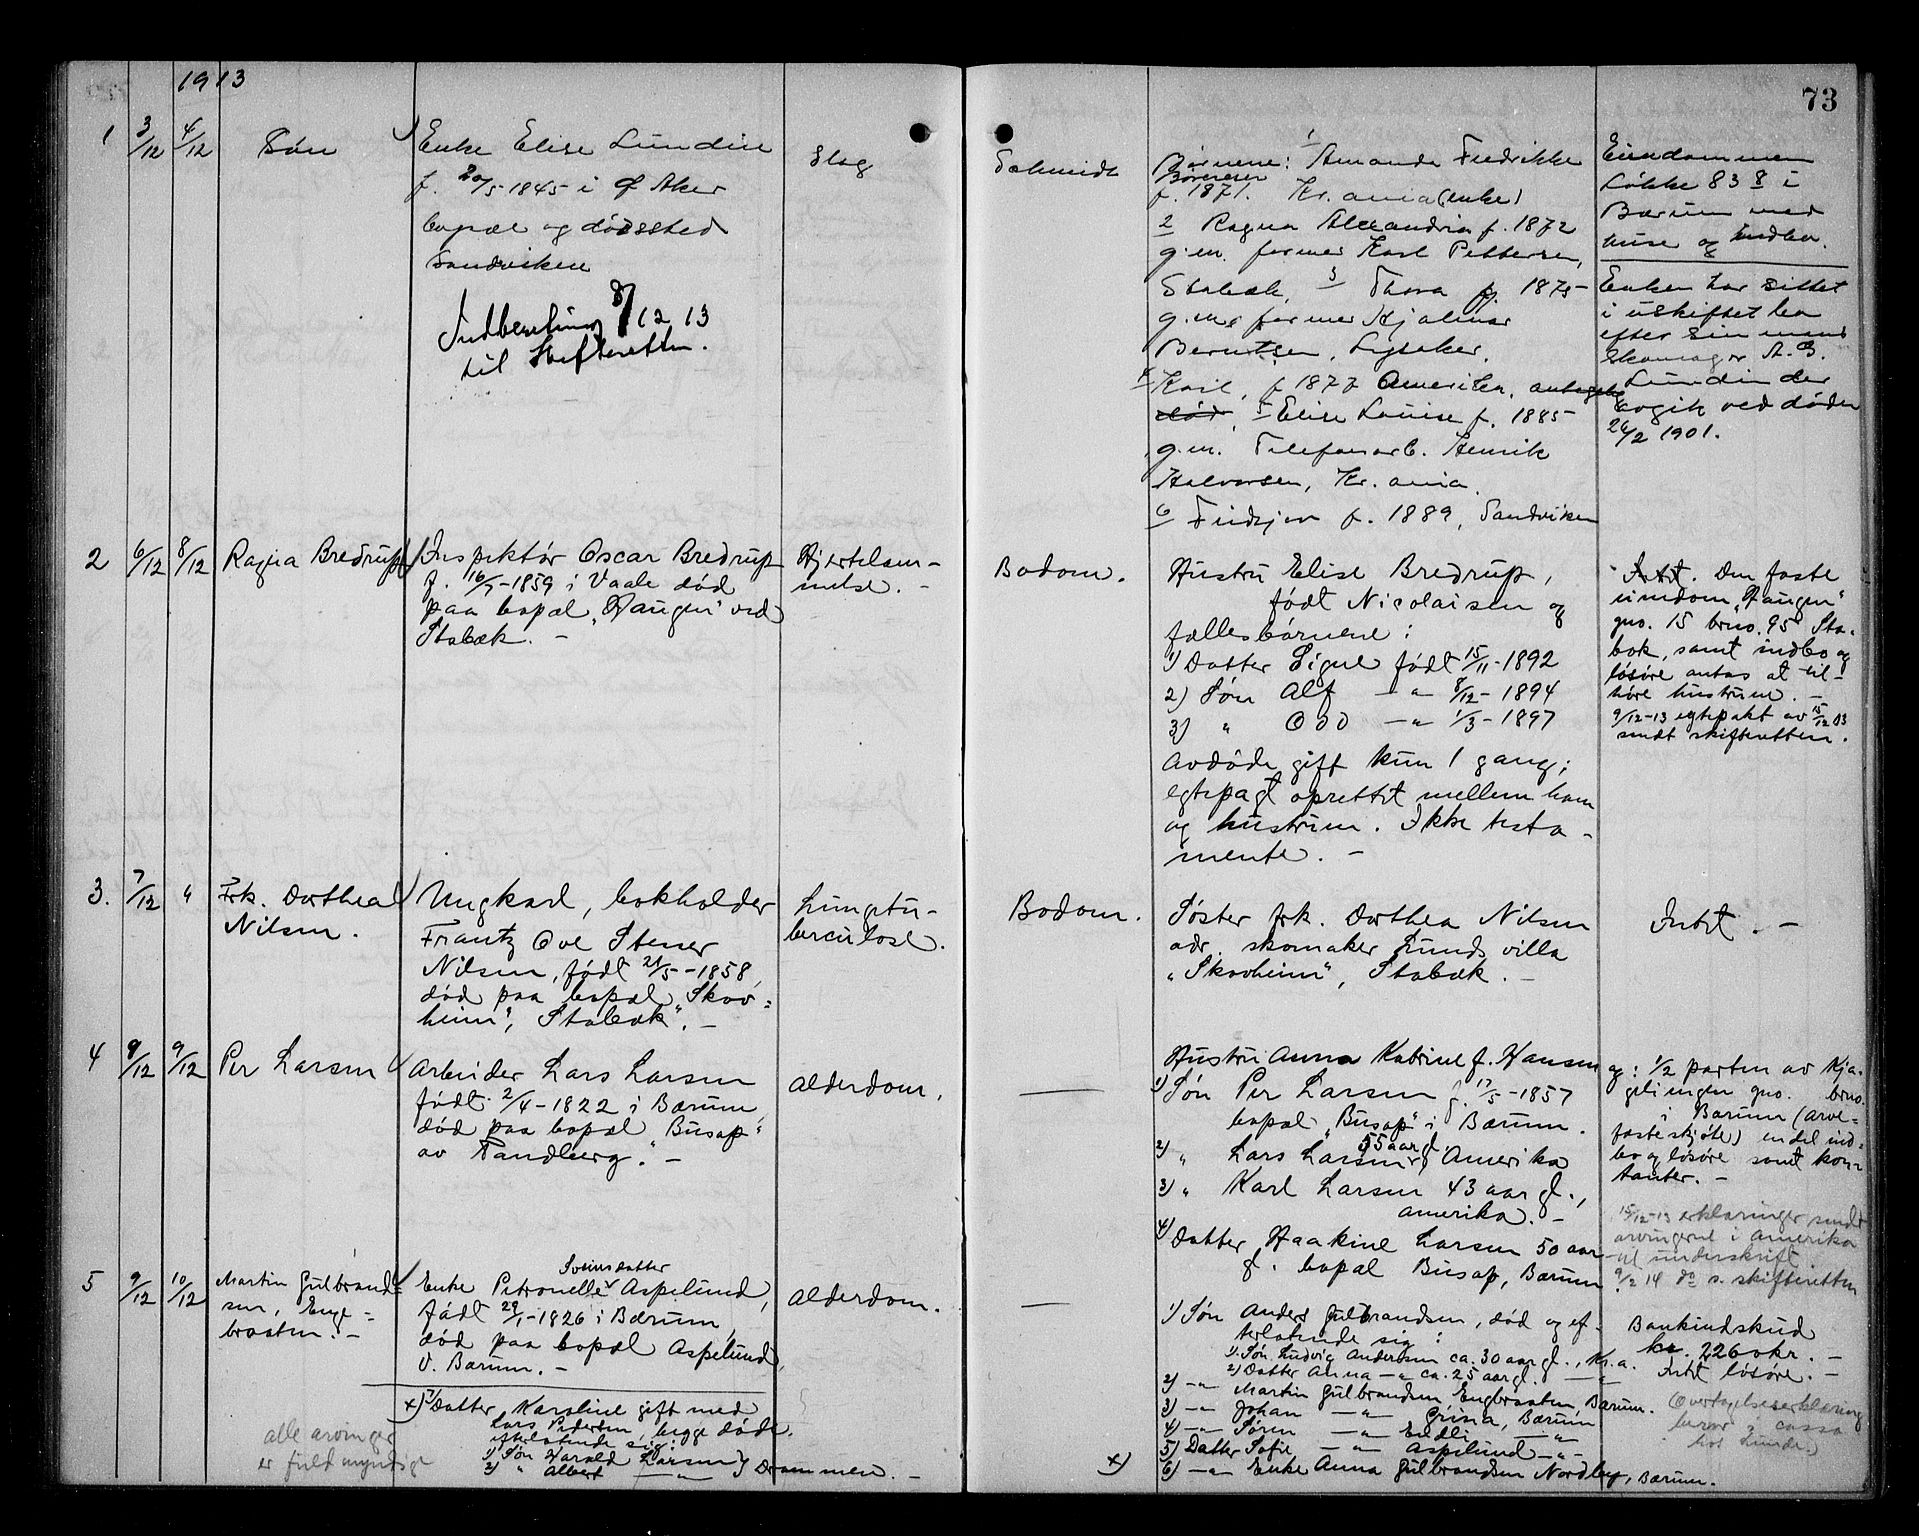 1913
73
1 3/12 4/12 Søn
Enke Elise Lundin
f. 20/5-1845 i Ø Aker
bopæl og dødssted
Sandviken
Indberetning 8/12 13
til Skifteretten.
Slag
Schmidt
Børnene: 1 Amanda Fredrikke
f. 1871. Kr.ania (enke)
2 Ragna Alexandria f. 1872
g.m. former Karl Pettersen,
Stabæk, 3 Thora f. 1875
g.m. former Hjalmar
Berntsen, Lysaker.
4 Karl, f 1877 Amerika, antagelig
død, 5 Elise Louise f. 1885
g.m. Telefonarb. Henrik
Halvorsen, Kr.ania.
6 Fridtjov f. 1889, Sandviken
Eiendommen
Løkke 83 8 i
Bærum med
huse og indbo.
Enken har sittet
i uskiftet bo
efter sin mand
Skomager A. B.
Lundin der
avgik ved døden
26/2 1901.
2 6/12 8/12 Ragna Bredrup
Inspektør Oscar Bredrup
f. 16/7-1859 i Vaale død
paa bopæl „Haugen" ved
Stabæk. -
Hjertelam-
melse. -
Bodom.
Hustru Elise Bredrup,
født Nicolaisen og
fællesbørnene:
1) Datter Signe født 15/11-1892
2) Søn Alf —"— 8/12-1894
3) " Odd —"— 1/3-1897
Avdøde gift kun 1 gang;
egtepagt oprettet mellem ham
og hustruen. Ikke testa-
mente. -
Intet. Den faste
eiendom „Haugen"
gno. 15 brno. 95 Sta-
bæk, samt indbo og
løsøre antas at til-
høre hustruen. -
9/12-13 egtepakt av 15/12 03
sendt skifteretten.
3. 7/12 " Frk. Dorthea
Nilsen.
Ungkarl, bokholder
Frantz Ove Stener
Nilsen, født 21/5-1858,
død paa bopæl „Skov-
heim", Stabæk. -
Lungetu-
berculose.
Bodom.
Søster frk. Dorthea Nilsen
adr. skomaker Lunds villa
„Skovheim", Stabæk. -
Intet. -
4 8/12 9/12 Per Larsen
Arbeider Lars Larsen
født 2/4-1822 i Bærum,
død paa bopæl „Busop"
av Tandberg. -
Alderdom.
—
Hustru Anna Katrine f. Hansen og:
1) Søn Per Larsen f. 17/5-1857
bopæl „Busop" i Bærum.
2) " Lars Larsen, 55 aar gl. Amerika
3) " Karl Larsen 43 aar gl.,
Amerika. -
4) Datter Haakine Larsen 50 aar
gl. bopæl Busop, Bærum
1/2 parten av Kja-
gelingen gno. brno.
i Bærum (arve-
festeskjøte) en del ind-
bo og løsøre samt kon-
tanter. -
15/12-13 erklæringer sendt
arvingerne i Amerika
til underskrift.
9/2 14 do s. skifteretten
5 9/12 10/12 Martin Gulbrand-
sen, Enge-
braaten. -
Enke Petronelle Svensdatter Aspelund,
født 29/1-1826 i Bærum,
død paa bopæl Aspelund,
V. Bærum. -
Alderdom.
—
1) Søn Anders Gulbrandsen, død og ef-
terlatende sig:
1) Søn Ludvig Andersen ca. 30 aar gl., Kr.a.
2) Datter Anna —"— ca. 25 aar gl. —"—
2) —"— Martin Gulbrandsen Engebraaten, Bærum.
3) —"— Johan —"— Bærum
4) —"— Søren —"— Endli —"—
5) Datter Sofie —"— Aspelund —"—
6) —"— Enke Anna Gulbrandsen Nordby, Bærum.
x)
Bankindskud
kr. 2260 kr. -
Intet løsøre. -
Overtagelseserklæring
beror i cassa
hos Lunde.
x) 7) Datter Karoline gift med
Lars Pedersen, begge døde,
efterlatende sig:
1) Søn Harald Larsen } Drammen. -
2) " Albert —"—
alle arvinger
er fuldmyndige